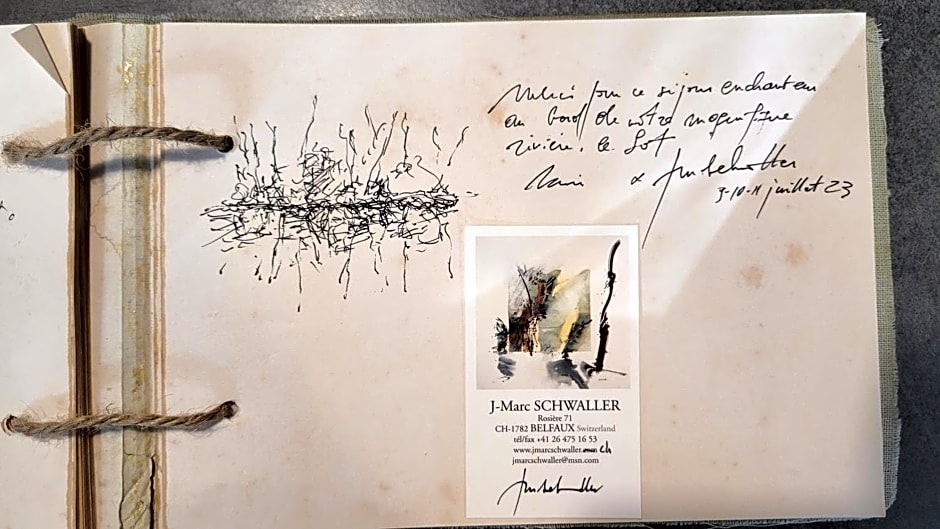 Merci pour ce séjour enchanteur
au bord de votre magnifique
rivière, le Lot
&
9-10-11 juillet 23
J-Marc SCHWALLER
Rosière 71
CH-1782 BELFAUX Switzerland
tél/fax +41 26 475 16 53
www.jmarcschwaller.com ch
jmarcschwaller@msn.com